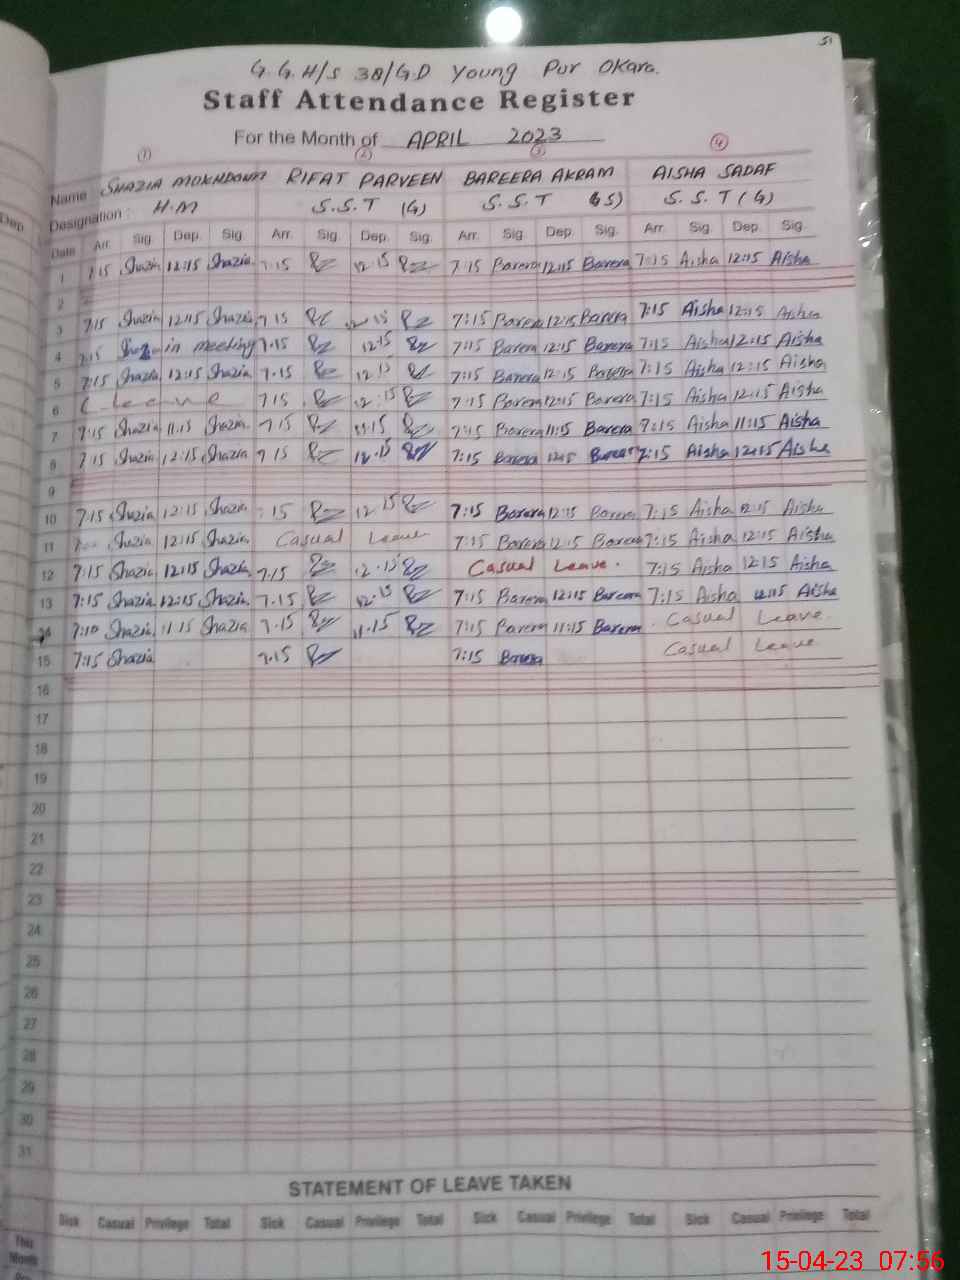 51
G.G.H/S 38/GD Young Pur Okara.
Staff Attendance Register
For the Month of APRIL 2023
① ② ③ ④
Name : SHAZIA MOKHDOWM RIFAT PARVEEN BAREERA AKRAM AISHA SADAF
Designation : H.M S.S.T (G) S.S.T (S) S.S.T (G)
Dep.
Date Arr. Sig. Dep. Sig. Arr. Sig. Dep. Sig. Arr. Sig. Dep. Sig. Arr. Sig. Dep. Sig.
1 7:15 Shazia 12:15 Shazia 7.15 12.15 7:15 Barera 12:15 Barera 7:15 Aisha 12:15 Aisha
2
3 7:15 Shazia 12:15 Shazia 7 15 12 15 7:15 Barera 12:15 Barera 7:15 Aisha 12:15 Aisha
4 7:15 in meeting 7.15 12.15 7:15 Barera 12:15 Barera 7:15 Aisha 12:15 Aisha
5 7:15 Shazia 12:15 Shazia 7.15 12.15 7:15 Barera 12:15 Barera 7:15 Aisha 12:15 Aisha
6 Leave 7 15 12.15 7:15 Barera 12:15 Barera 7:15 Aisha 12:15 Aisha
7 7:15 Shazia 11:15 Shazia 7.15 11.15 7:15 Barera 11:15 Barera 7:15 Aisha 11:15 Aisha
8 7:15 Shazia 12:15 Shazia 7 15 12.15 7:15 Barera 12:15 Barera 7:15 Aisha 12:15 Aisha
9
10 7:15 Shazia 12:15 Shazia 7 15 12.15 7:15 Barera 12:15 Barera 7:15 Aisha 12:15 Aisha
11 Shazia 12:15 Shazia Casual Leave 7:15 Barera 12:15 Barera 7:15 Aisha 12:15 Aisha
12 7:15 Shazia 12:15 Shazia 7.15 12.15 Casual Leave. 7:15 Aisha 12:15 Aisha
13 7:15 Shazia 12:15 Shazia 7.15 12.15 7:15 Barera 12:15 Bareera 7:15 Aisha 12:15 Aisha
14 7:10 Shazia 11:15 Shazia 7.15 11.15 7:15 Barera 11:15 Barera Casual Leave.
15 7:15 Shazia 7.15 7:15 Barera Casual Leave
16
17
18
19
20
21
22
23
24
25
26
27
28
29
30
31
STATEMENT OF LEAVE TAKEN
Sick Casual Privilege Total Sick Casual Privilege Total Sick Casual Privilege Total Sick Casual Privilege Total
This
Month
15-04-23 07:56